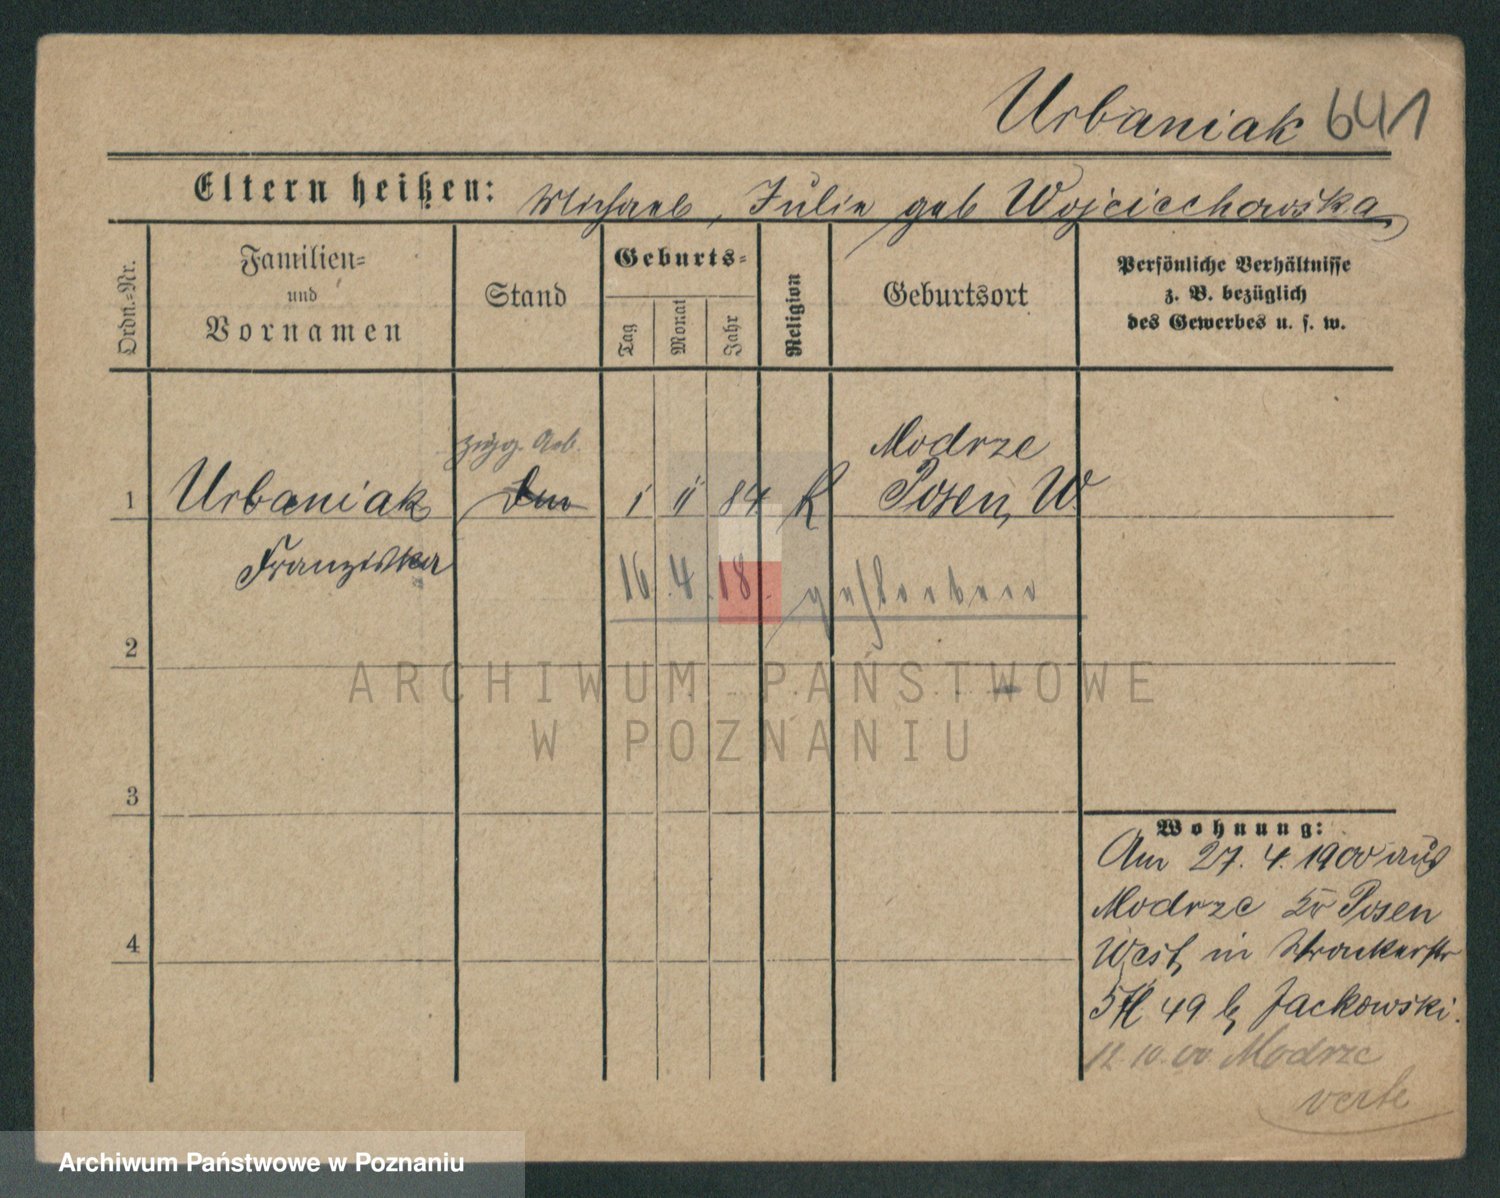 Urbaniak 641
Eltern heißen: Michael, Julie geb Wojciechowska
Ordn.=Nr.
Familien= und Vornamen
Stand
Geburts=
Tag
Monat
Jahr
Religion
Geburtsort
Persönliche Verhältnisse
z. B. bezüglich
des Gewerbes u. s. w.
Modrze
1 Urbaniak 1 11 84 K Posen, W.
Franziska
16.4.18. gestorben
2
ARCHIWUM PAŃSTWOWE
W POZNANIU
3
Wohnung:
Am 27.4.1900 aus
Modrze Posen
West, in
49 b Jackowski.
12.10.00 Modrze
verte
4
Archiwum Państwowe w Poznaniu